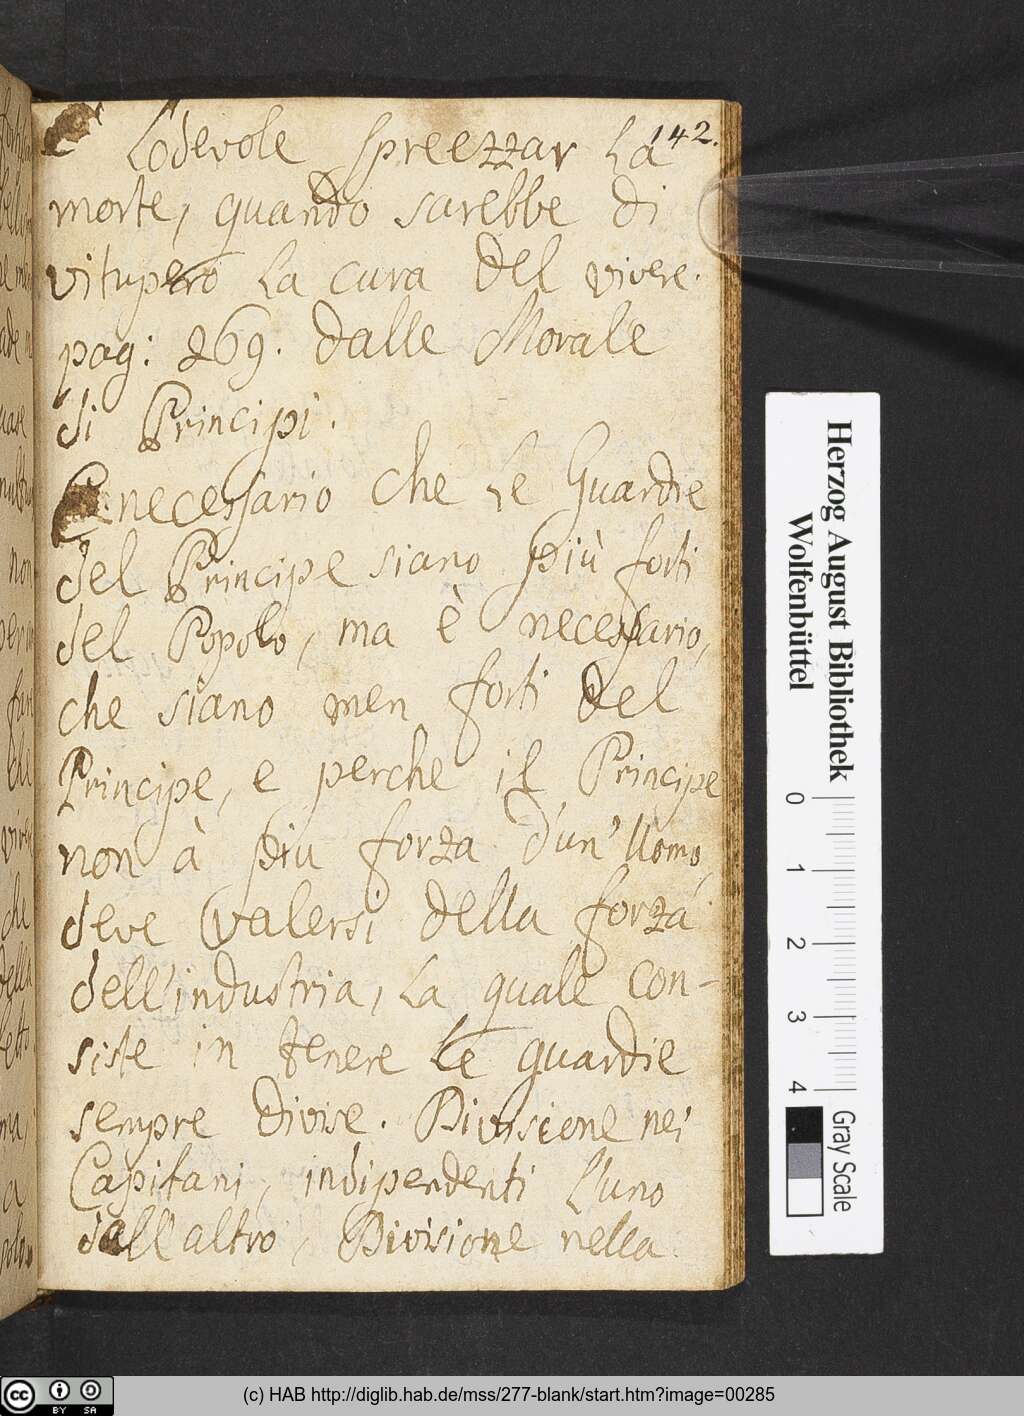 142.
È Lodevole spreezzar La
morte, quando sarebbe di
vitupero La cura del vivere.
pag: 269. dalle Morale
di Principi.
È necessario che Le Guardie
del Principe siano più forti
del Popolo, ma è necessario,
che siano men forti del
Principe, e perche il Principe
non à più forza d'un' Uomo,
deve valersi della forza
dell'industria, La quale con-
siste in tenere Le guardie
sempre divise. Divisione nei
Capitani, indipendenti l'uno
dall'altro, Divisione nella
Herzog August Bibliothek
Wolfenbüttel
0 1 2 3 4
Gray Scale
cc BY SA
(c) HAB http://diglib.hab.de/mss/277-blank/start.htm?image=00285